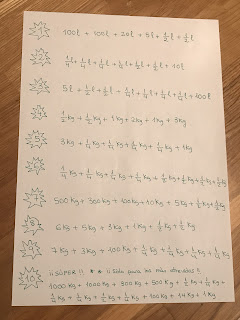 1 100l + 100l + 20l + 5l + 1/2 l + 1/2 l
2 1/4 l + 1/4 l + 1/4 l + 1/4 l + 1/2 l + 1/2 l + 10l
3 5l + 1/2 l + 1/2 l + 1/4 l + 1/4 l + 1/4 l + 1/4 l + 100l
4 1/2 Kg + 1/2 Kg + 1Kg + 2Kg + 1Kg + 3Kg
5 3Kg + 1/4 Kg + 1/4 Kg + 1/4 Kg + 1/4 Kg + 1Kg
6 1/4 Kg + 1/4 Kg + 1/4 Kg + 1/4 Kg + 1/2 Kg + 1/2 Kg + 1/2 Kg + 1/2 Kg
7 500Kg + 300Kg + 100Kg + 10Kg + 5Kg + 1/2 Kg + 1/2 Kg
8 6Kg + 5Kg + 3Kg + 1Kg + 1/2 Kg + 1/2 Kg
9 7Kg + 3Kg + 100Kg + 1/4 Kg + 1/4 Kg + 1/4 Kg + 1/4 Kg
10 ¡¡ SÚPER !! ¡¡ Sólo para los más atrevidos !!
1000Kg + 1000Kg + 300Kg + 500Kg + 1/2 Kg + 1/4 Kg +
1/4 Kg + 1/4 Kg + 1/4 Kg + 1/2 Kg + 100Kg + 14Kg + 1Kg